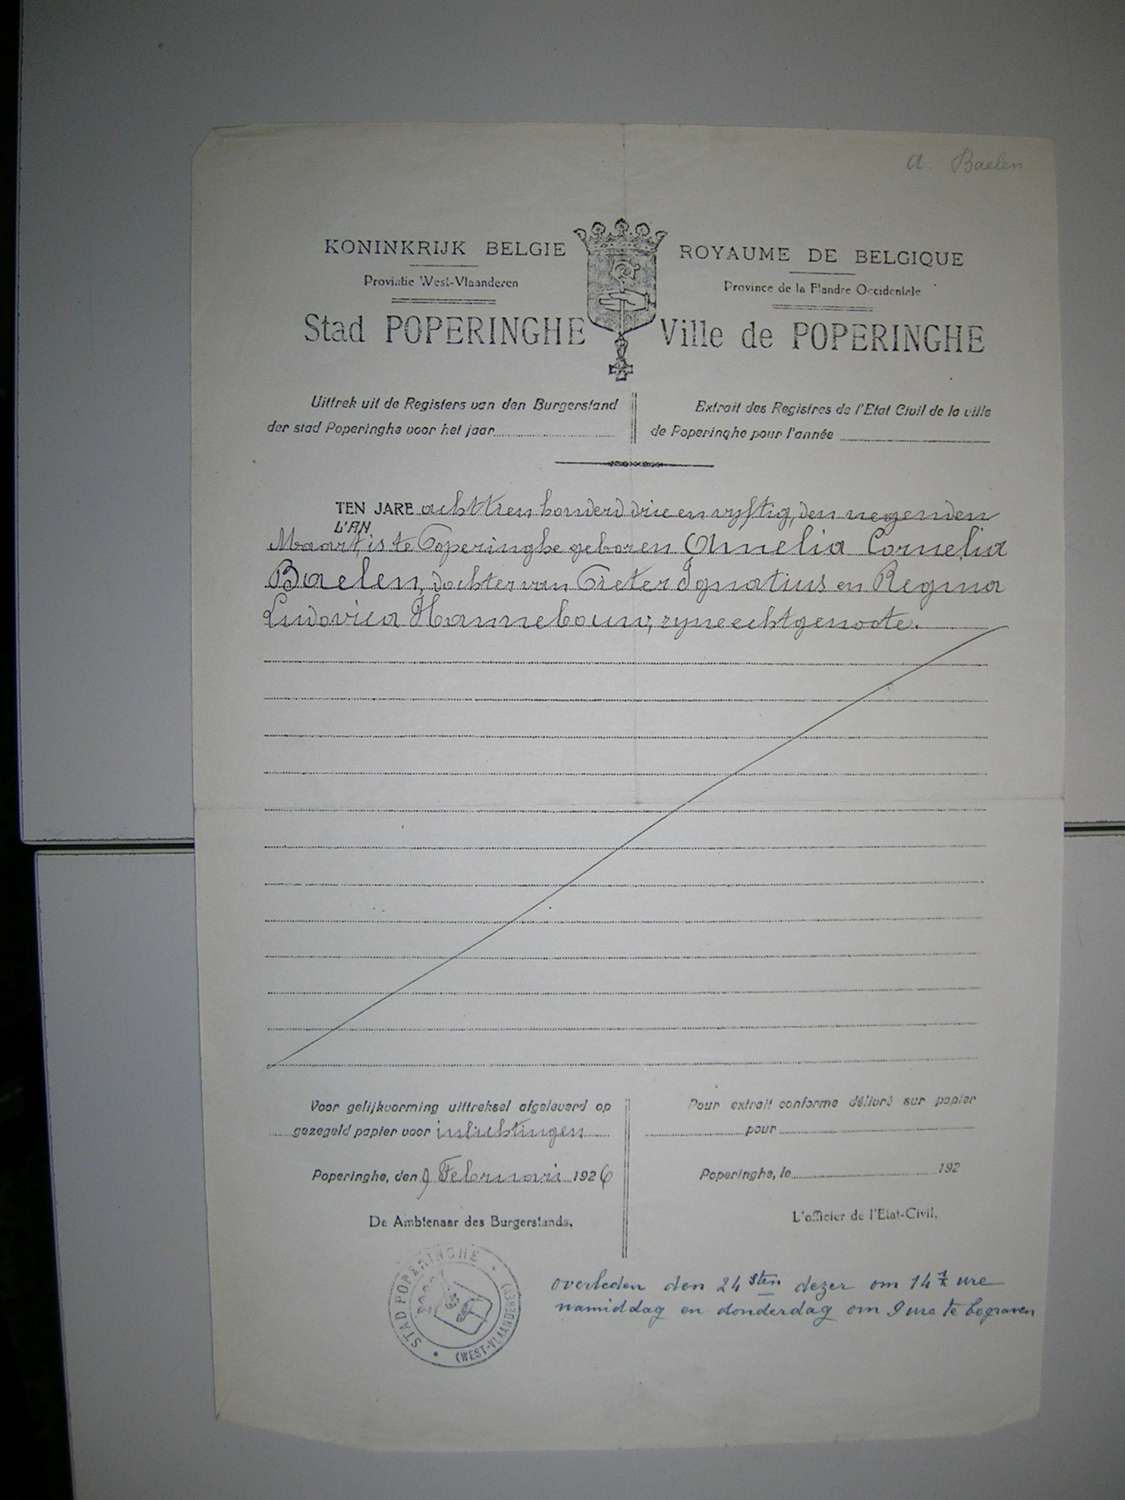 a. Baelen
KONINKRIJK BELGIE
Provintie West-Vlaanderen
Stad POPERINGHE
ROYAUME DE BELGIQUE
Province de la Flandre Occidentale
Ville de POPERINGHE
Uittrek uit de Registers van den Burgerstand
der stad Poperinghe voor het jaar
Extrait des Registres de l'Etat Civil de la ville
de Poperinghe pour l'année
TEN JARE achttien honderd drie en vyftig, den negenden
L'AN
Maart, is te Poperinghe geboren Amelia Cornelia
Baelen, dochter van Pieter Ignatius en Regina
Ludovica Hannebouw, zyne echtgenoote.
Voor gelijkvorming uittreksel afgeleverd op
gezegeld papier voor inlichtingen
Poperinghe, den 9 Februari 1926
De Ambtenaar des Burgerstands,
Pour extrait conforme délivré sur papier
pour
Poperinghe, le 192
L'officier de l'Etat-Civil,
STAD POPERINGHE
(WEST-VLAANDEREN)
overleden den 24sten dezer om 14 ½ ure
namiddag en donderdag om 9 ure te begraven